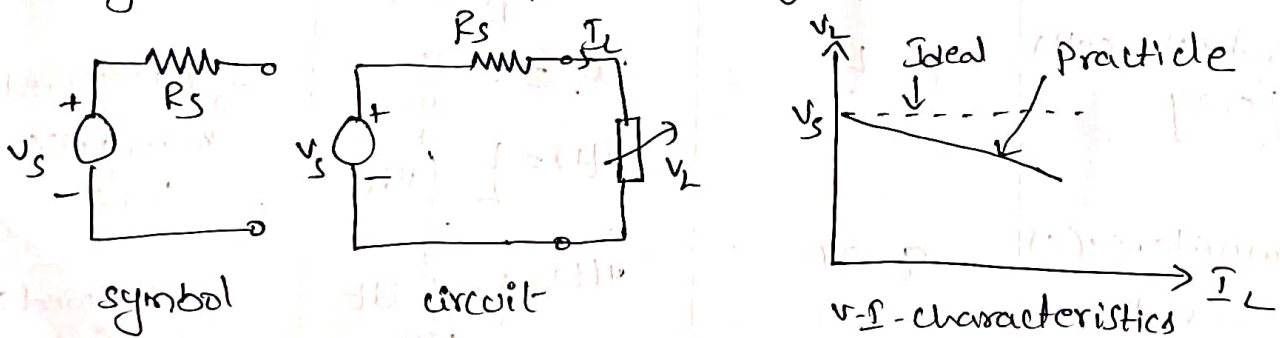 Rs
+
Vs
−
symbol
Rs
IL
+
Vs
−
VL
circuit
VL
Ideal
Practicle
Vs
IL
V-I-characteristics